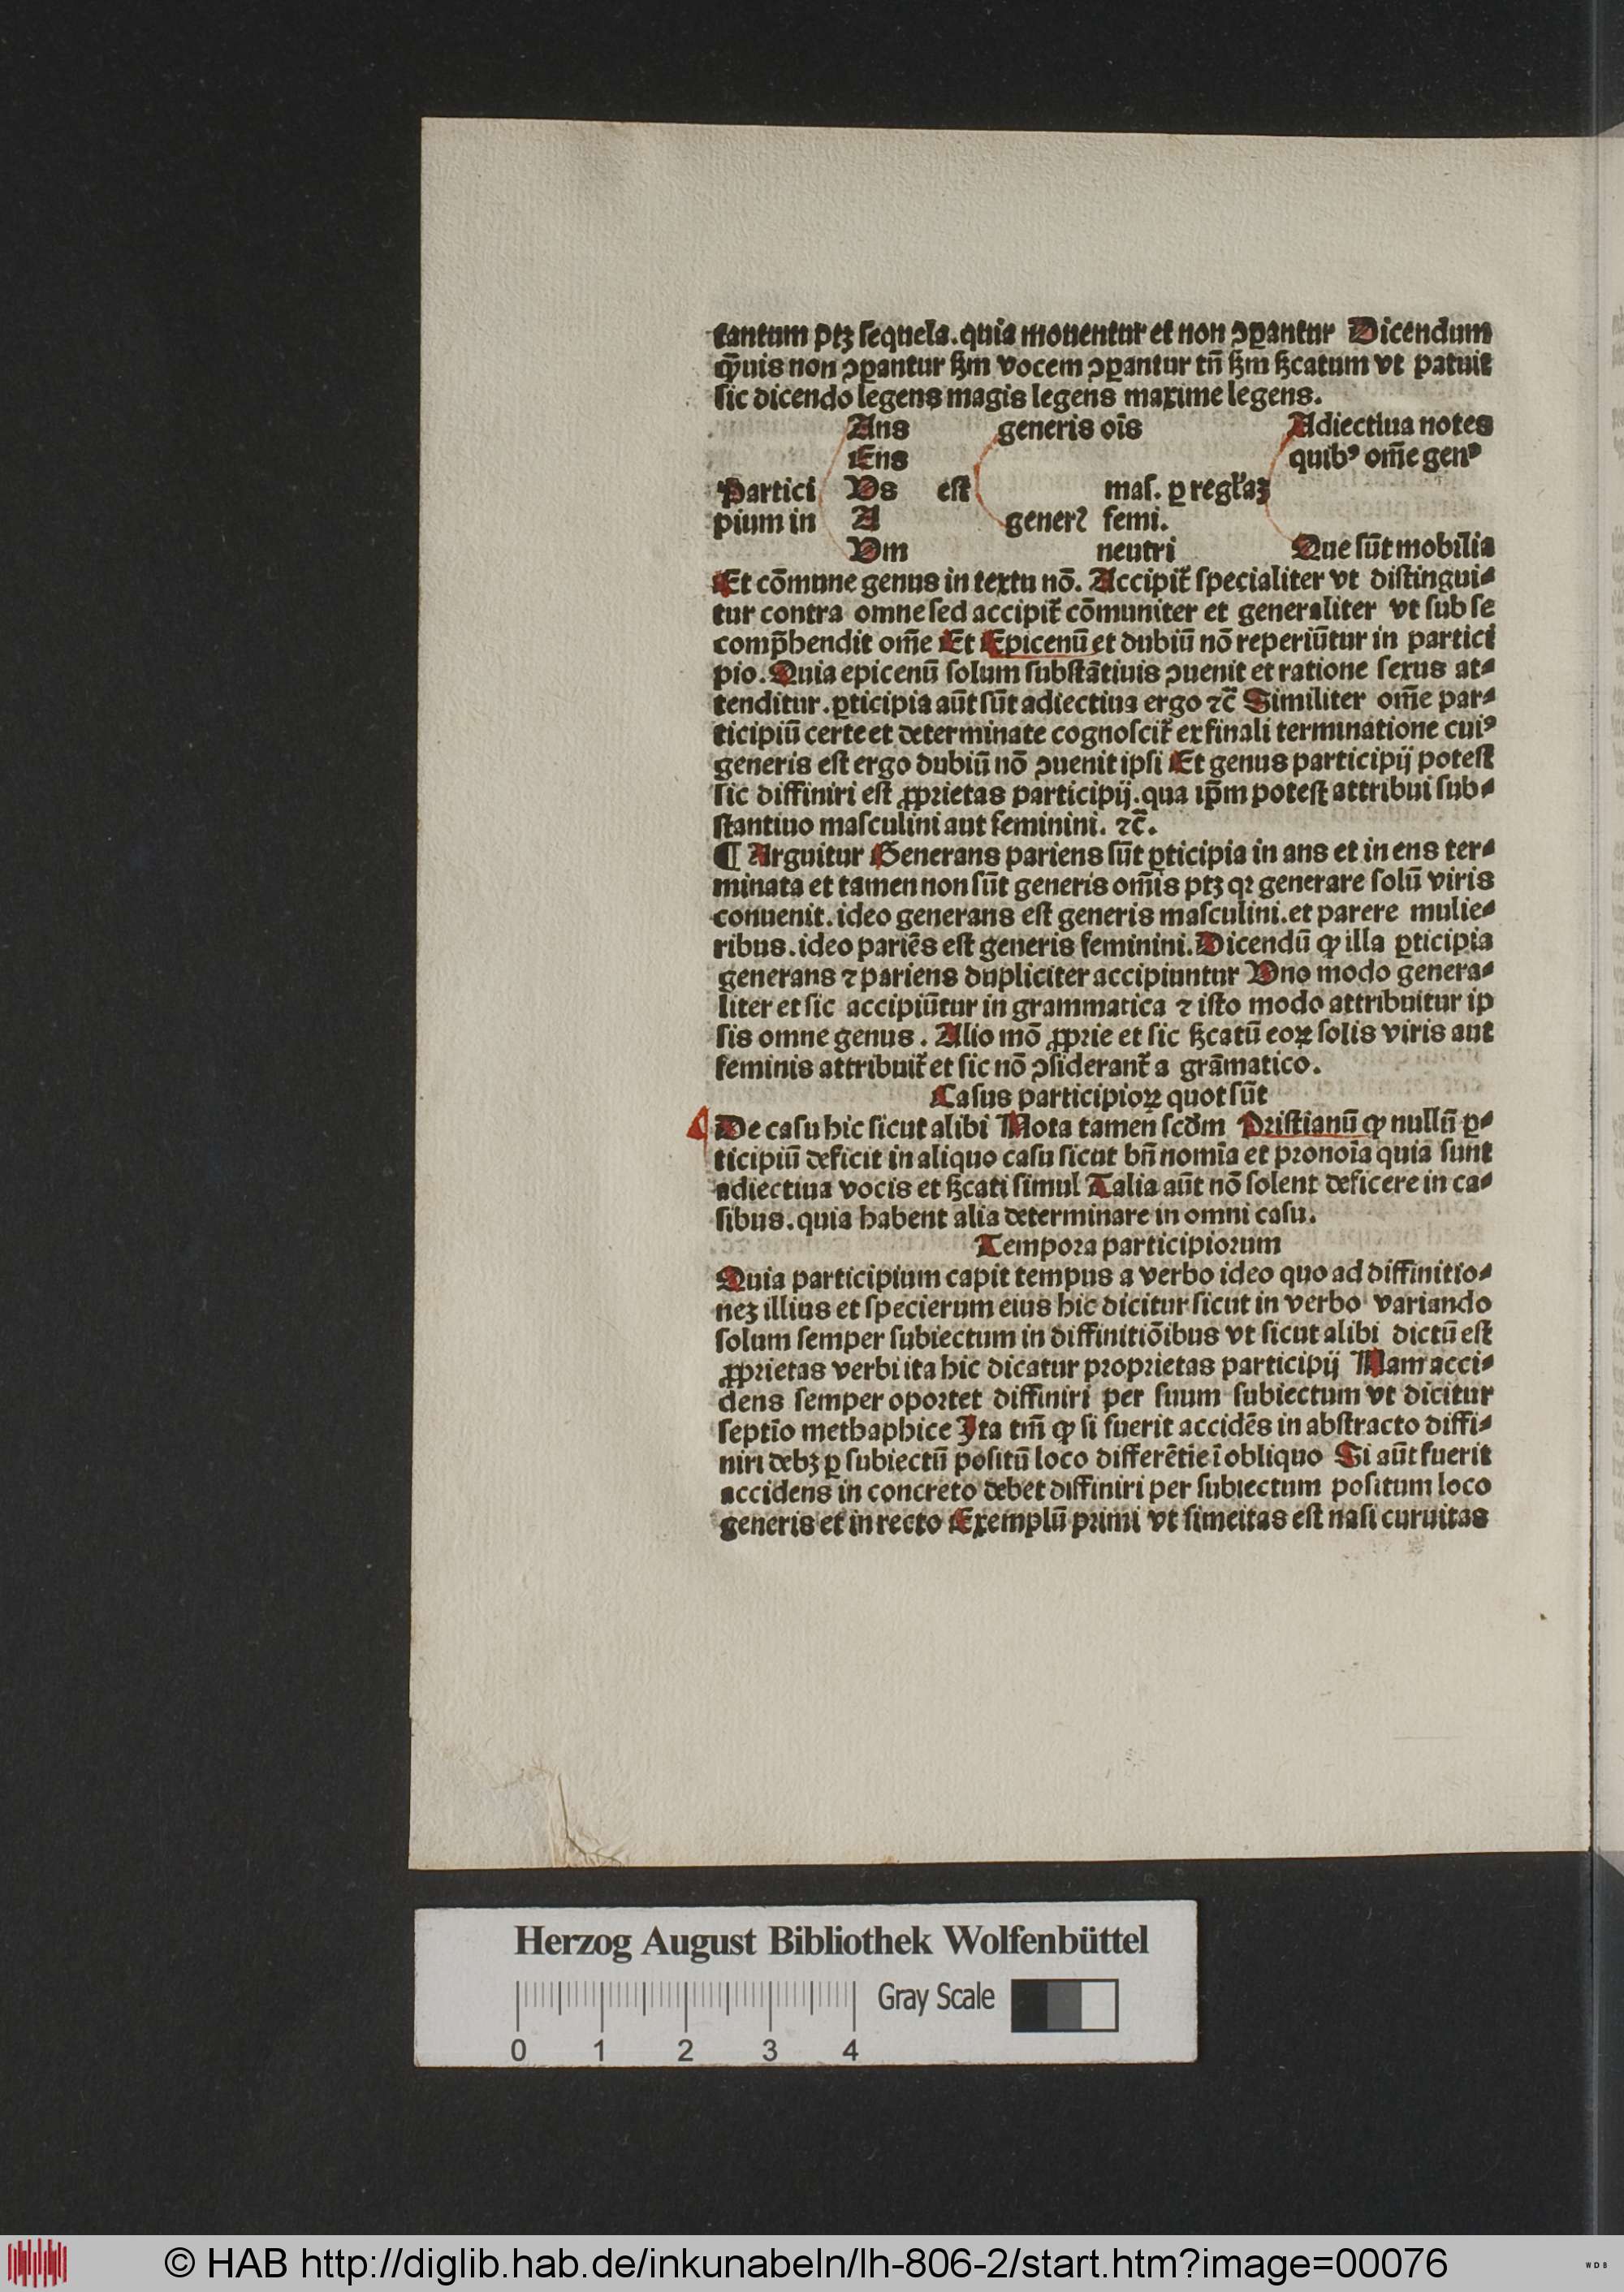 tantum ptꝫ ſequela. quia mouentur et non ↄꝑantur Dicendum
q̃uis non ↄꝑantur ẜm vocem ↄꝑantur tñ ẜm ẜcatum vt patuit
ſic dicendo legens magis legens maxime legens.
Ans generis oı̄s Adiectiua notes
Ens quibꝰ om̄e genꝰ
Partici Vs est maſ. ꝑ regl̃aꝫ
pium in A generꝭ femi.
Vm neutri Que ſūt mobilia
Et cōmune genus in textu nō. Accipit᷑ ſpecialiter vt diſtingui⸗
tur contra omne ſed accipit᷑ cōmuniter et generaliter vt ſub ſe
comp̄hendit om̄e Et Epicenū et dubiū nō reperiūtur in partici
pio. Quia epicenū ſolum ſubſtātiuis ↄuenit et ratione ſexus at⸗
tenditur. ꝑticipia aūt ſūt adiectiua ergo ⁊c̄ Similiter om̄e par⸗
ticipiū certe et determinate cognoſcit᷑ ex finali terminatione cuiꝰ
generis eſt ergo dubiū nō ↄuenit ipſi Et genus participij poteſt
ſic diffiniri eſt ꝓprietas participij. qua ip̄m poteſt attribui ſub⸗
ſtantiuo maſculini aut feminini. ⁊c̄.
¶ Arguitur Generans pariens ſūt ꝑticipia in ans et in ens ter⸗
minata et tamen non ſūt generis om̄is ptꝫ qꝛ generare ſolū viris
conuenit. ideo generans eſt generis maſculini. et parere mulie⸗
ribus. ideo pariēs eſt generis feminini. Dicendū ꝙ illa ꝑticipia
generans ⁊ pariens dupliciter accipiuntur Uno modo genera⸗
liter et ſic accipiūtur in grammatica ⁊ iſto modo attribuitur ip
ſis omne genus. Alio mō ꝓprie et ſic ẜcatū eoꝝ ſolis viris aut
feminis attribuit᷑ et ſic nō ↄſiderant᷑ a grāmatico.
Caſus participioꝝ quot ſūt
De caſu hic ſicut alibi Nota tamen ſcd̄m Priſtianū ꝙ nullū ꝑ⸗
ticipiū deficit in aliquo caſu ſicut bn̄ nomīa et pronoīa quia ſunt
adiectiua vocis et ẜcati ſimul Talia aūt nō ſolent deficere in ca⸗
ſibus. quia habent alia determinare in omni caſu.
Tempora participiorum
Quia participium capit tempus a verbo ideo quo ad diffinitio⸗
neꝫ illius et ſpecierum eius hic dicitur ſicut in verbo variando
ſolum ſemper ſubiectum in diffinitiōibus vt ſicut alibi dictū eſt
ꝓprietas verbi ita hic dicatur proprietas participij Nam acci⸗
dens ſemper oportet diffiniri per ſuum ſubiectum vt dicitur
ſeptīo methaphice Ita tm̄ ꝙ ſi fuerit accidēs in abſtracto diffi⸗
niri debꝫ ꝑ ſubiectū poſitū loco differētie ī obliquo Si aūt fuerit
accidens in concreto debet diffiniri per ſubiectum poſitum loco
generis et in recto Exemplū primi vt ſimeitas eſt naſi curuitas
Herzog August Bibliothek Wolfenbüttel
Gray Scale
0 1 2 3 4
© HAB http://diglib.hab.de/inkunabeln/lh-806-2/start.htm?image=00076
WDB